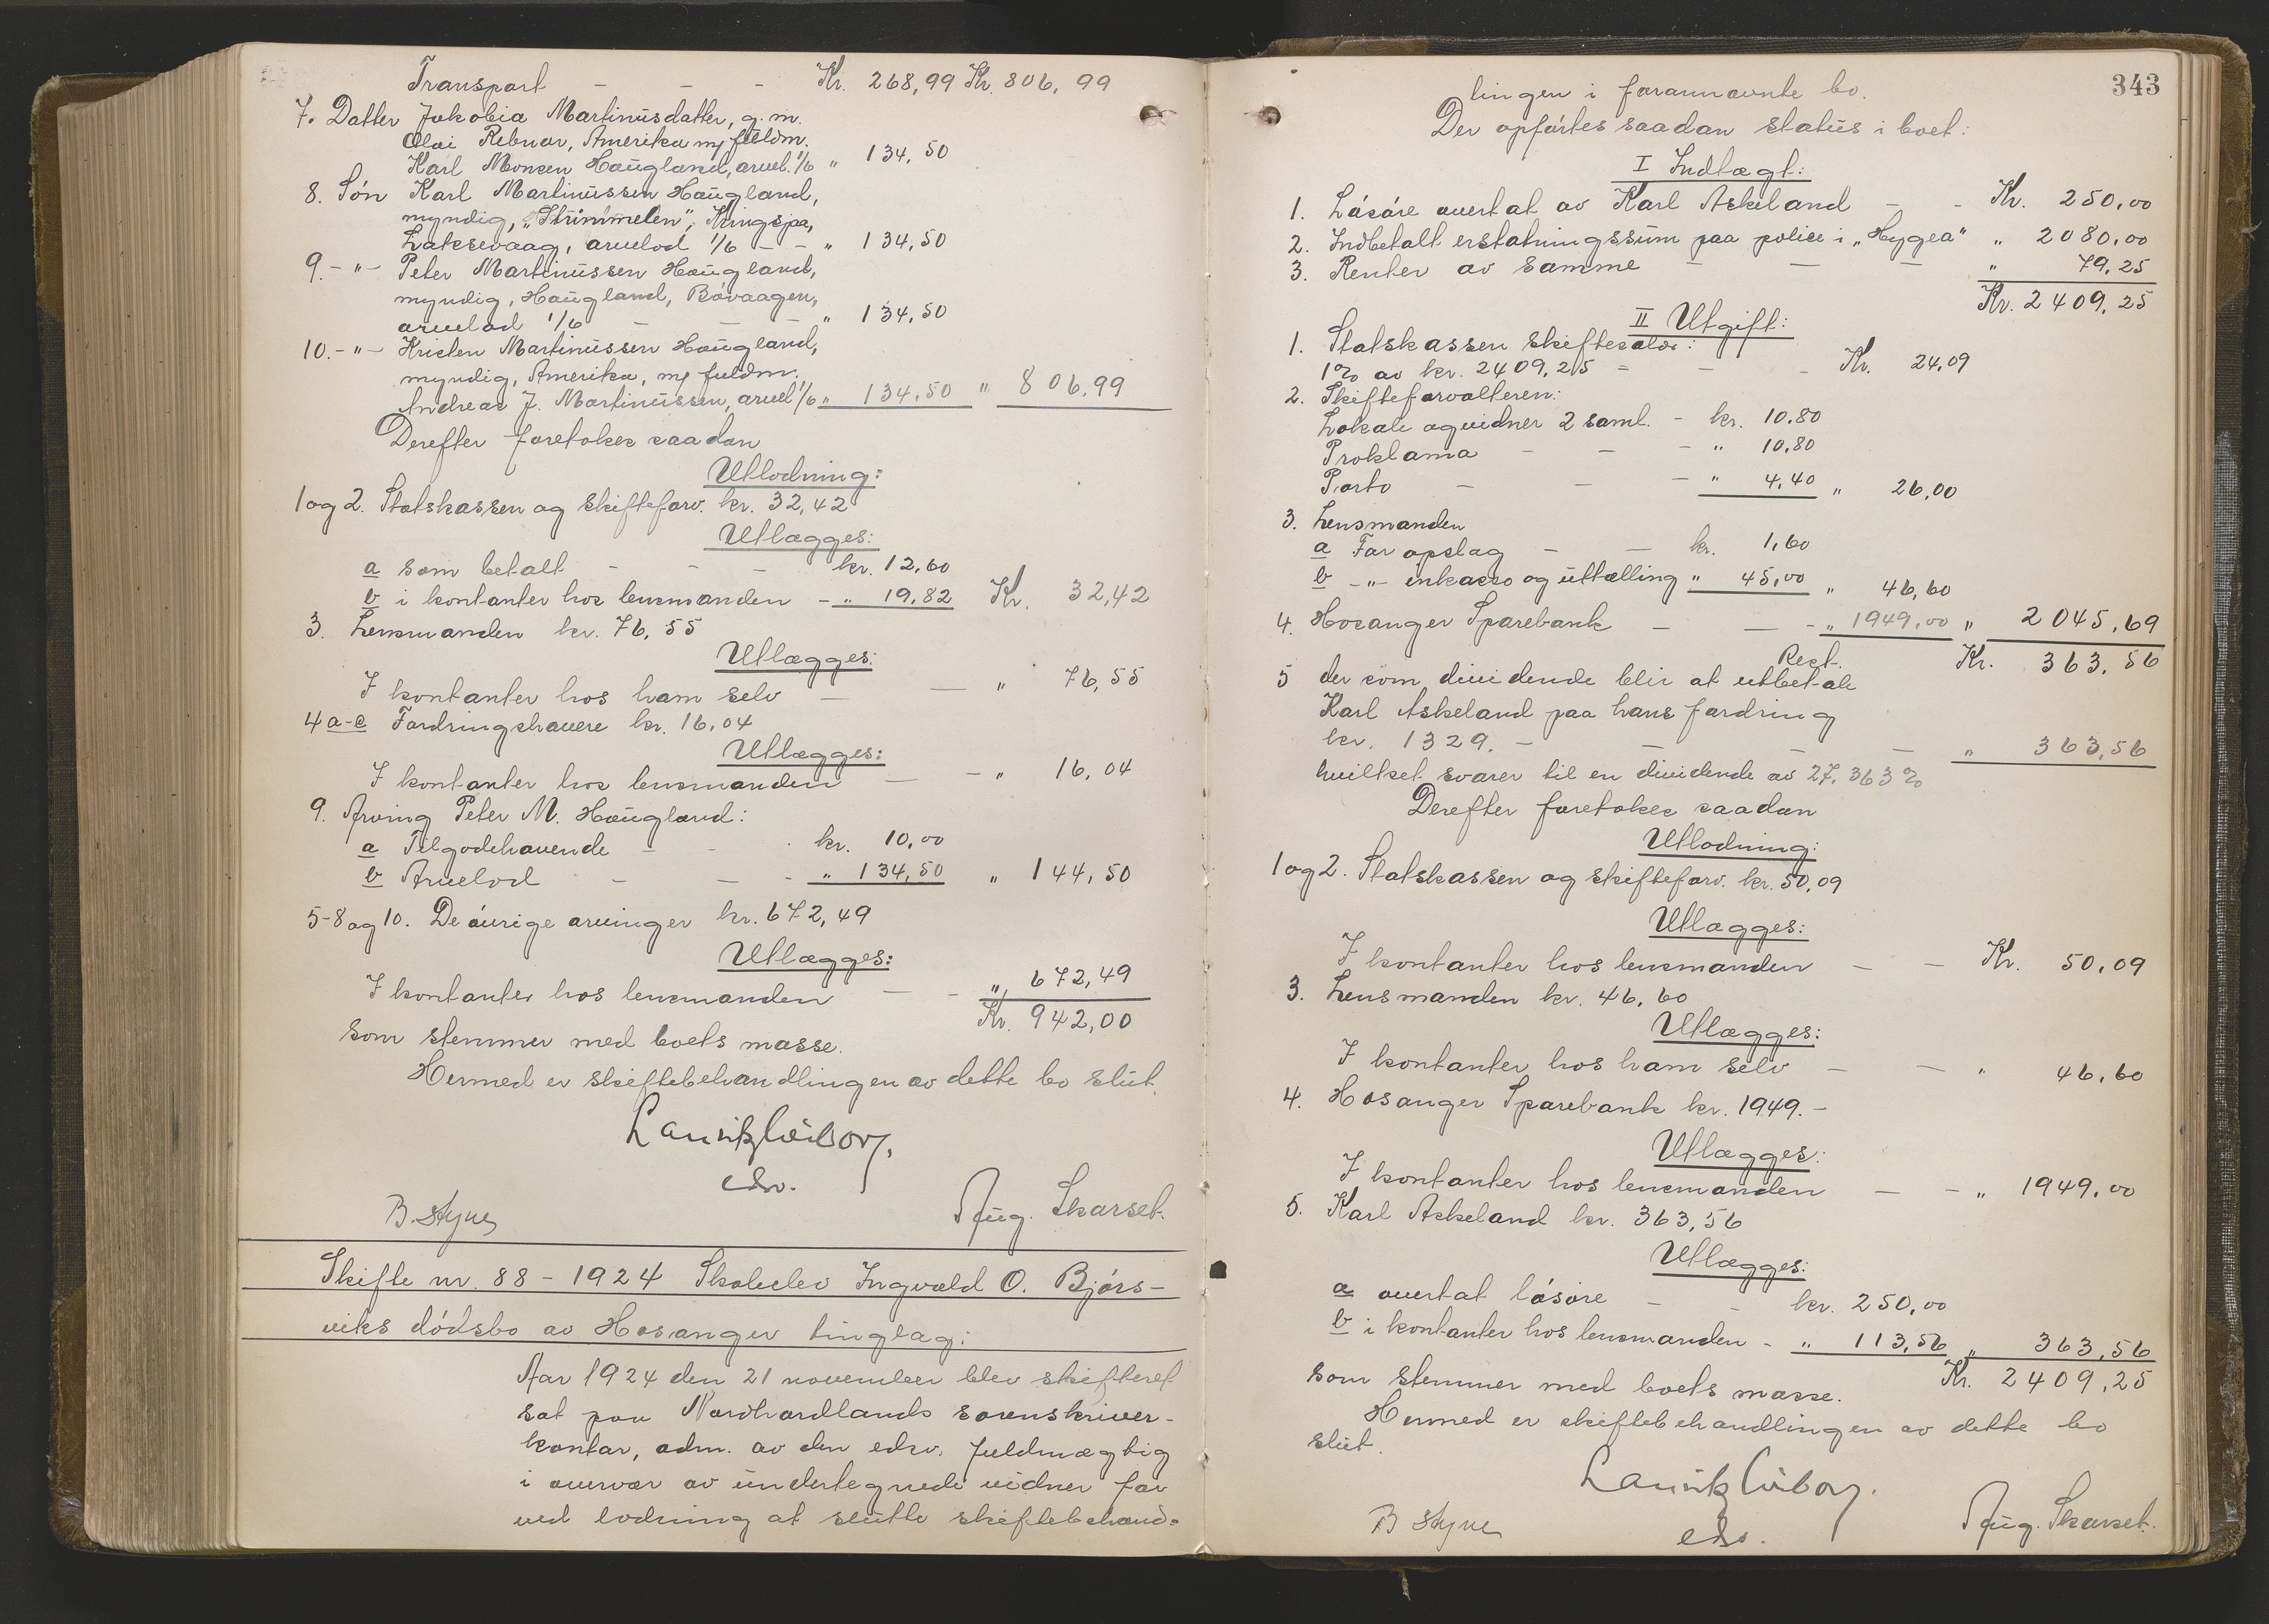 Transport - - - Kr. 268,99 Kr. 806,99
7. Datter Jakobia Martinusdatter, g. m.
Olai Rebnor, Amerika m/ fuldm.
Karl Monsen Haugland, arvel. 1/6 " 134,50
8. Søn Karl Martinussen Haugland,
myndig, Kringsjaa,
Laksevaag, arvelod 1/6 - - " 134,50
9. -"- Peter Martinussen Haugland,
myndig, Haugland, Bøvaagen,
arvelod 1/6 - - - " 134,50
10. -"- Kristen Martinussen Haugland,
myndig, Amerika, m/ fuldm.
Andreas J. Martinussen, arvel 1/6 " 134,50 " 806,99
Derefter foretokes saadan
Utlodning:
1 og 2. Statskassen og skifteforv. kr. 32,42
Utlægges:
a som betalt - - - kr. 12,60
b i kontanter hos lensmanden - " 19,82 Kr. 32,42
3. Lensmanden kr. 76,55
Utlægges:
I kontanter hos ham selv - - " 76,55
4 a-c Fordringshavere kr. 16,04
Utlægges:
I kontanter hos lensmanden - - " 16,04
9. Arving Peter M. Haugland:
a Tilgodehavende - - kr. 10,00
b Arvelod - - - " 134,50 " 144,50
5-8 og 10. De øvrige arvinger kr. 672,49
Utlægges:
I kontanter hos lensmanden - - " 672,49
Kr. 942,00
som stemmer med boets masse.
Hermed er skiftebehandlingen av dette bo slut.
edsv.
B. Styve Aug. Skarset.
Skifte nr. 88 - 1924 Skoleelev Ingvald O. Bjørs-
viks dødsbo av Hosanger tinglag:
Aar 1924 den 21 november blev skifteret
sat paa Nordhordlands sorenskriver-
kontor, adm. av den edsv. fuldmægtig
i overvær av undertegnede vidner for
ved lodning at slutte skiftebehand-
343
lingen i forannævnte bo.
Der opførtes saadan status i boet:
I Indtægt:
1. Løsøre overtat av Karl Askeland - - Kr. 250,00
2. Indbetalt erstatningssum paa police i "Hygea" " 2080,00
3. Renter av samme - - - " 79,25
Kr. 2409,25
II Utgift:
1. Statskassen skiftesalær:
1% av kr. 2409,25 - - - Kr. 24,09
2. Skifteforvalteren:
Lokale og vidner 2 saml. - kr. 10.80
Proklama - - - " 10,80
Porto - - - " 4,40 " 26,00
3. Lensmanden
a For opslag - - kr. 1,60
b -"- inkasso og uttælling " 45,00 " 46,60
4. Hosanger Sparebank - - - " 1949,00 " 2045,69
Rest. Kr. 363,56
5 der som dividende blir at utbetale
Karl Askeland paa hans fordring
kr. 1329.- - - - " 363,56
hvilket svarer til en dividende av 27,363%
Derefter foretokes saadan
Utlodning:
1 og 2. Statskassen og skifteforv. kr. 50,09
Utlægges:
I kontanter hos lensmanden - - Kr. 50,09
3. Lensmanden kr. 46,60
Utlægges:
I kontanter hos ham selv - - " 46,60
4. Hosanger Sparebank kr. 1949.-
Utlægges:
I kontanter hos lensmanden - - " 1949,00
5. Karl Askeland kr. 363,56
Utlægges:
a overtat løsøre - - kr. 250,00
b i kontanter hos lensmanden - " 113,56 " 363,56
som stemmer med boets masse. Kr. 2409,25
Hermed er skiftebehandlingen av dette bo
slut.
B Styve edsv. Aug. Skarset.